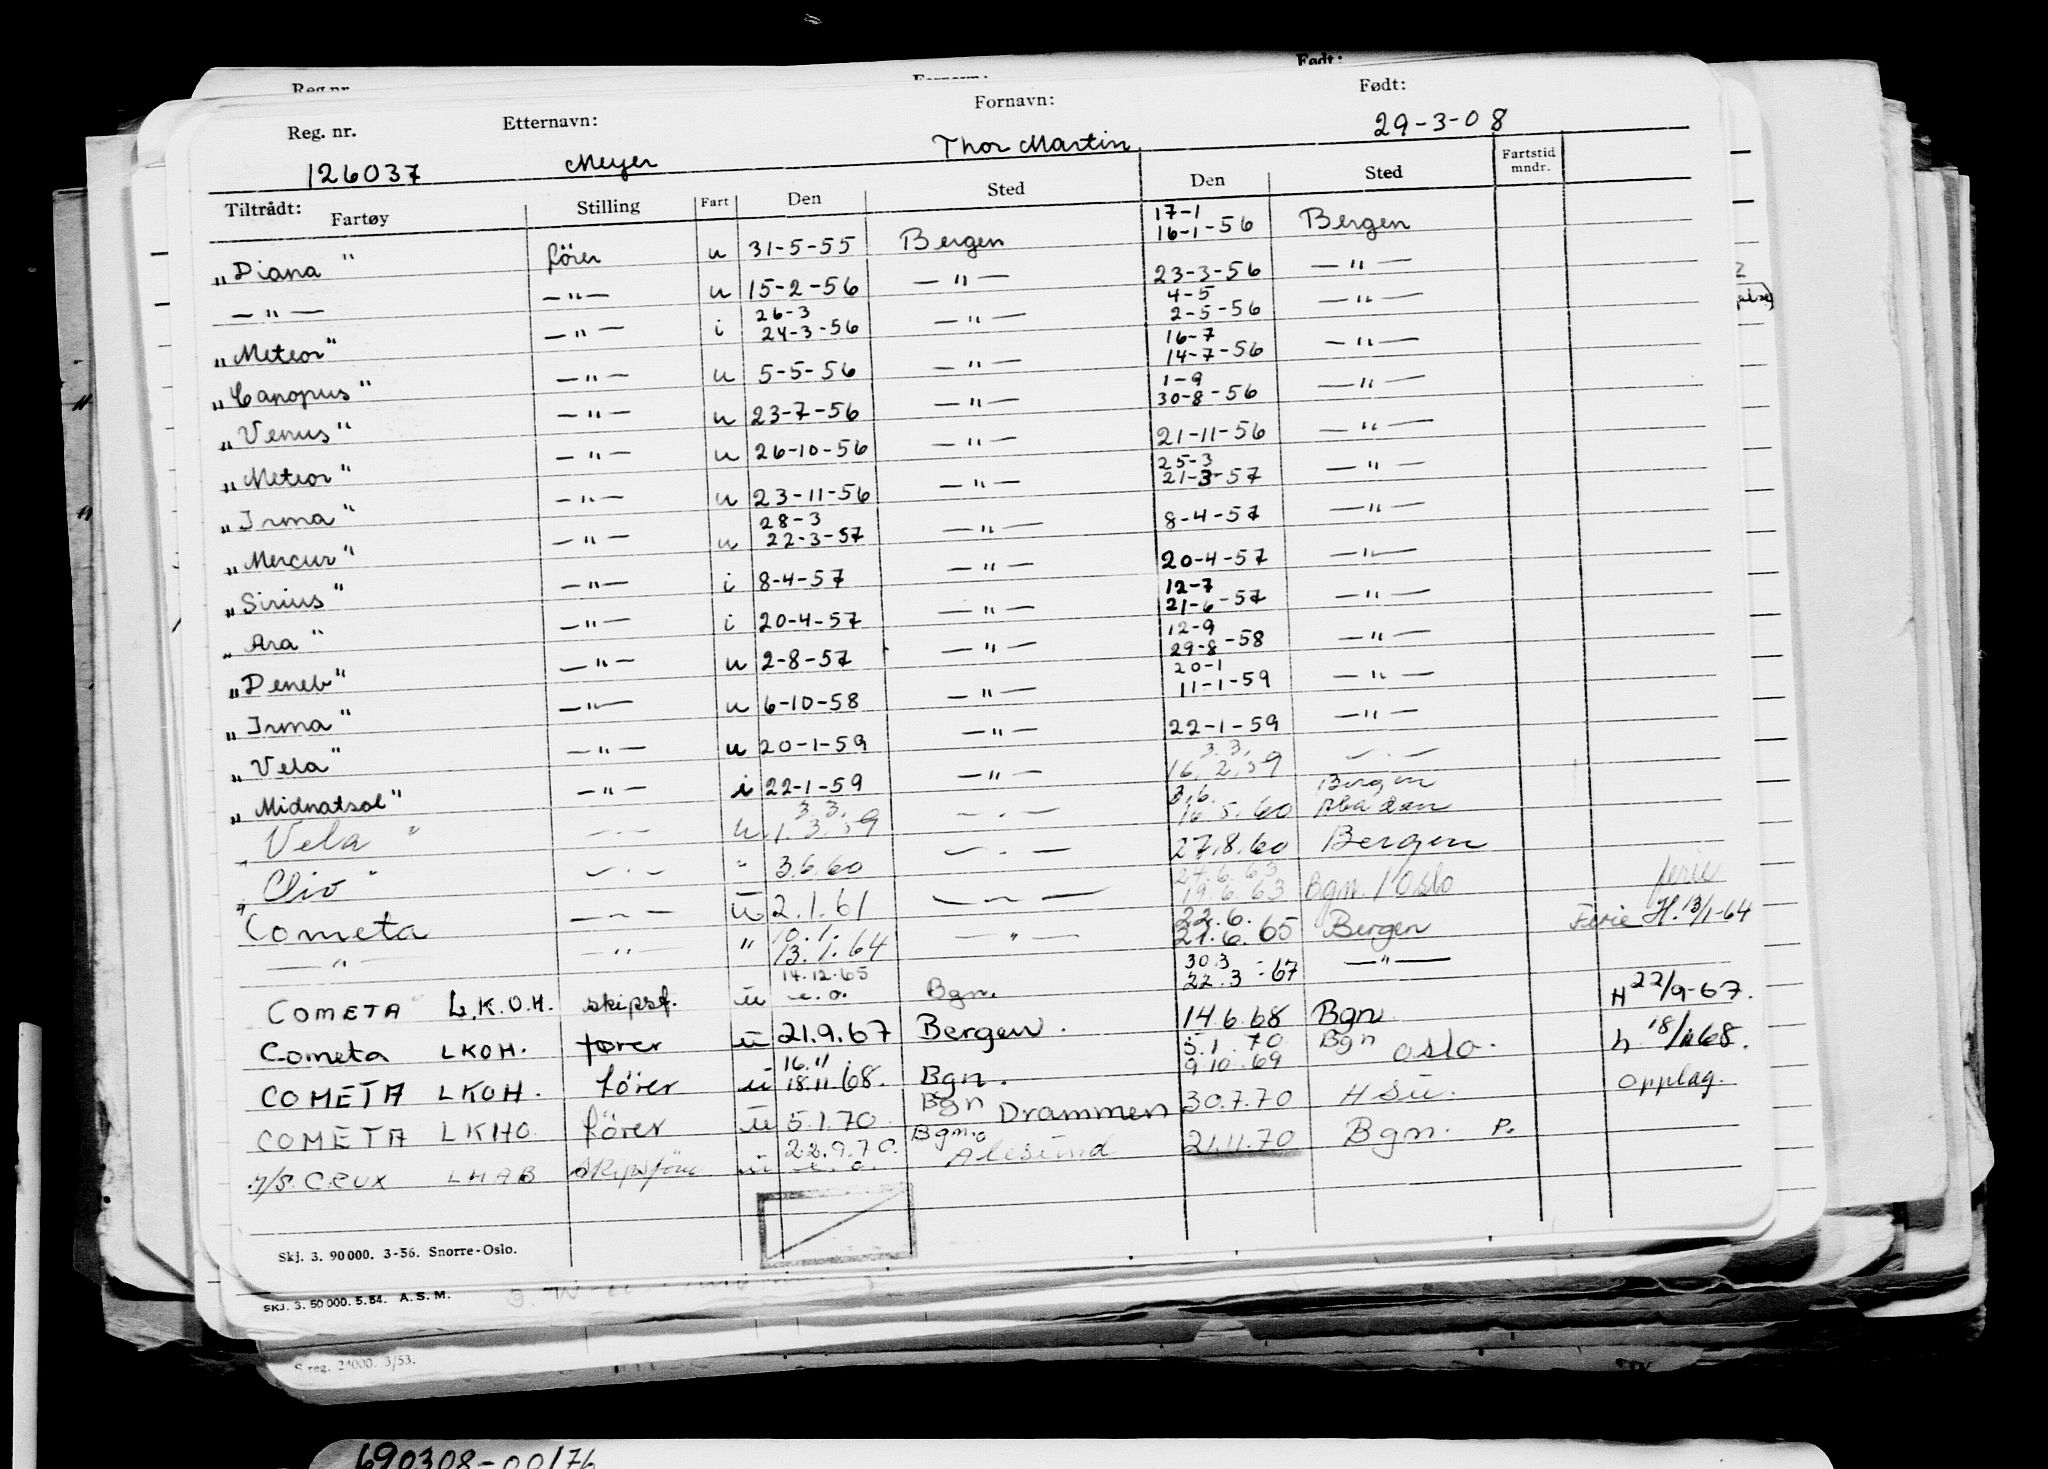 Reg. nr. Etternavn: Fornavn: Født:
126037 Meyer Thor Martin 29-3-08
Tiltrådt: Fartøy Stilling Fart Den Sted Den Sted Fartstid mndr.
„Diana" förer u 31-5-55 Bergen 17-1 16-1-56 Bergen
—"— —"— u 15-2-56 —"— 23-3-56 —"—
„Meteor" —"— i 26-3 24-3-56 —"— 4-5 2-5-56 —"—
„Canopus" —"— u 5-5-56 —"— 16-7 14-7-56 —"—
„Venus" —"— u 23-7-56 —"— 1-9 30-8-56 —"—
„Meteor" —"— u 26-10-56 —"— 21-11-56 —"—
„Irma" —"— u 23-11-56 —"— 25-3 21-3-57 —"—
„Mercur" —"— u 28-3 22-3-57 —"— 8-4-57 —"—
„Sirius" —"— i 8-4-57 —"— 20-4-57 —"—
„Ara" —"— i 20-4-57 —"— 12-7 21-6-57 —"—
„Deneb" —"— u 2-8-57 —"— 12-9 29-8-58 —"—
„Irma" —"— u 6-10-58 —"— 20-1 11-1-59 —"—
„Vela" —"— u 20-1-59 —"— 22-1-59 —"—
„Midnatsol" —"— i 22-1-59 —"— 3.3. 16.2.59 —.—
„Vela" —.— u 3.3. 1.3.59 —.— 3.6. 16.5.60 Bergen Abadan
„Clio" —.— " 3.6.60 —.— 27.8.60 Bergen
Cometa —"— u 2.1.61 —"— 24.6.63 19.6.63 Bgn./Oslo ferie
—"— —"— " 10.1. 13.1.64 —"— 22.6. 21.6.65 Bergen Ferie H.13/1-64
COMETA L.K.O.H. skipsf. u 14.12.65 e.o. Bgn. 30.3 22.3-67 —"—
Cometa LKOH. fører u 21.9.67 Bergen. 14.6.68 Bgn H 22/9-67.
COMETA LKOH. förer u 16.11 18.11.68. Bgn. 5.1.70 9.10.69 Bgn Oslo. h 18/11 68.
COMETA LKHO förer u 5.1.70 Bgn Drammen 30.7.70 H Su. Opplag.
CRUX LHAB u 22.9.70. e.o. Bgn. Ålesund 21.11.70 Bgn. P.
Skj. 3. 90 000. 3-56. Snorre-Oslo.
SKJ. 3. 50 000. 5.54. A. S. M.
S reg. 24000. 3/53.
690308-00176